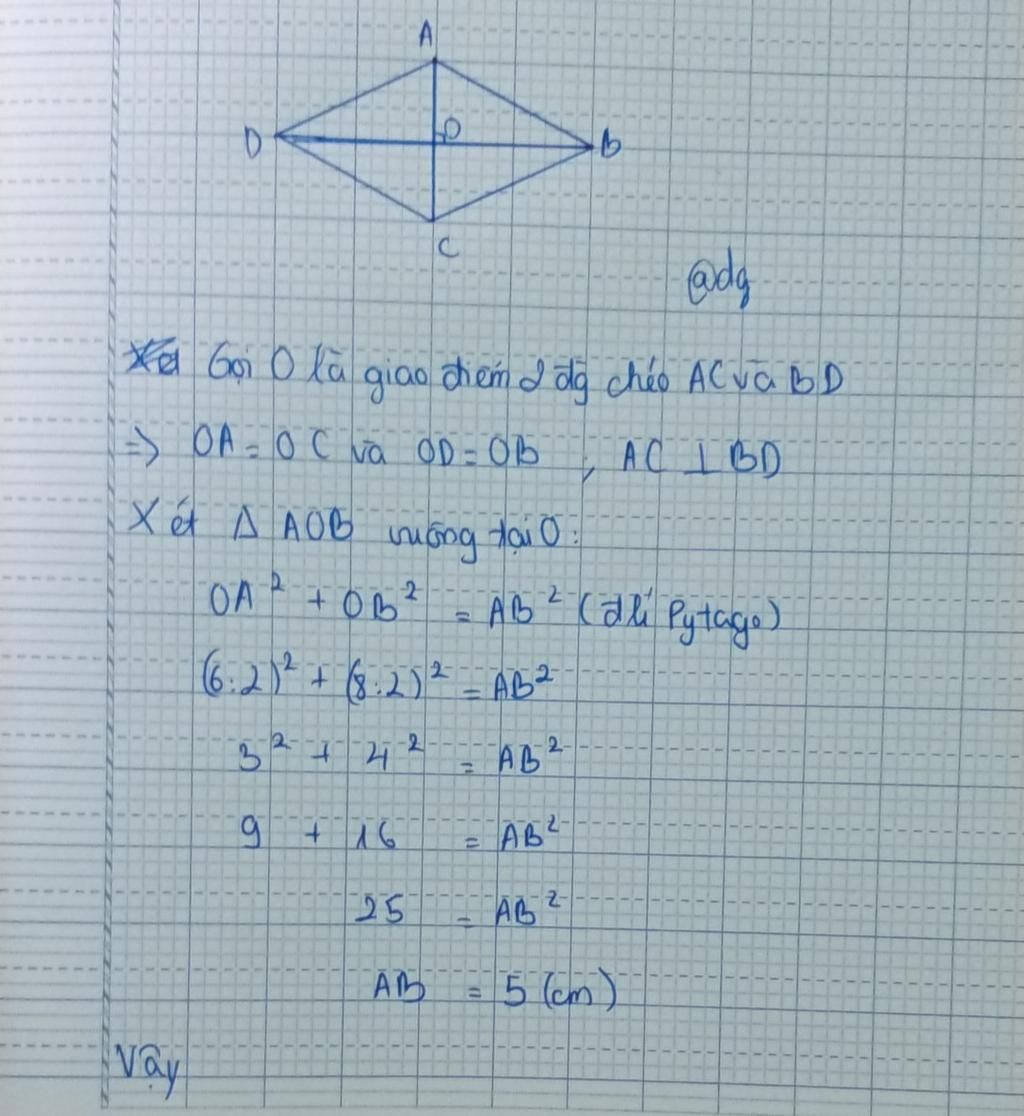 A
D
O
B
C
@dg
Gọi O là giao điểm 2 đg chéo AC và BD
=> OA = OC và OD = OB , AC ⊥ BD
Xét Δ AOB vuông tại O:
OA² + OB² = AB² (đlí Pytago)
(6:2)² + (8:2)² = AB²
3² + 4² = AB²
9 + 16 = AB²
25 = AB²
AB = 5 (cm)
Vậy